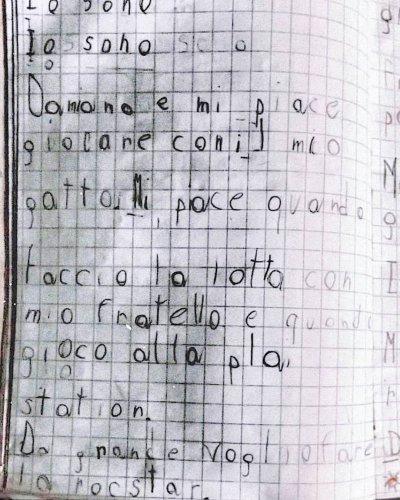 Io sono
Io sono
Damiano e mi piace
giocare con il mio
gatto. Mi piace quando
faccio la lotta con
mio fratello e quando
gioco alla pla
station.
Da grande voglio fare
la rocstar.